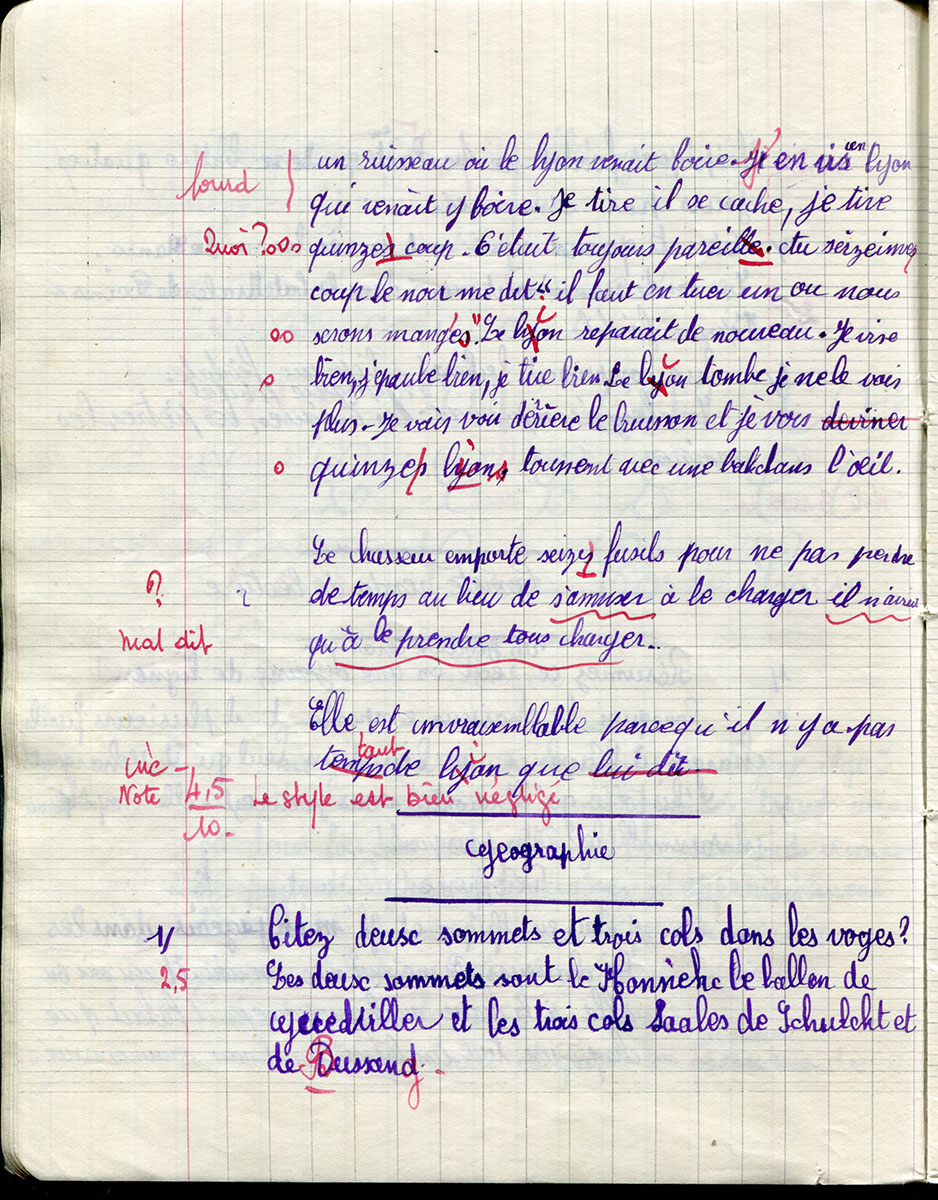 un ruisseau où le lyon venait boire. J'en vis un lyon
lourd
qui venait y boire. Je tire il se cache, je tire
Quoi ? quinzes coup. C'était toujours pareille. Au seizeimes
coup le noir me dit "il faut en tuer un ou nous
serons mangés". Le lyon reparait de nouveau. Je vise
bien, j'épaule bien, je tire bien. Le lyon tombe je ne le vois
plus. Je vais voir dérière le buisson et je vois deviner
quinzes lyons, tournent avec une bale dans l'œil.
Le chasseur emporte seizes fusils pour ne pas perdre
? de temps au lieu de s'amuser à le charger il n'aurai
mal dit qu'à le prendre tous charger..
Elle est invraisemblable parcequ'il n'y a pas
tant
temps de lyon que lui dit
Note 4,5 Le style est bien négligé
10.
Géographie
1/ Citez deux sommets et trois cols dans les voges?
2,5 Les deux sommets sont le Honnèke le ballon de
Guedviller et les trois cols Saales de Schulcht et
de Bussang.